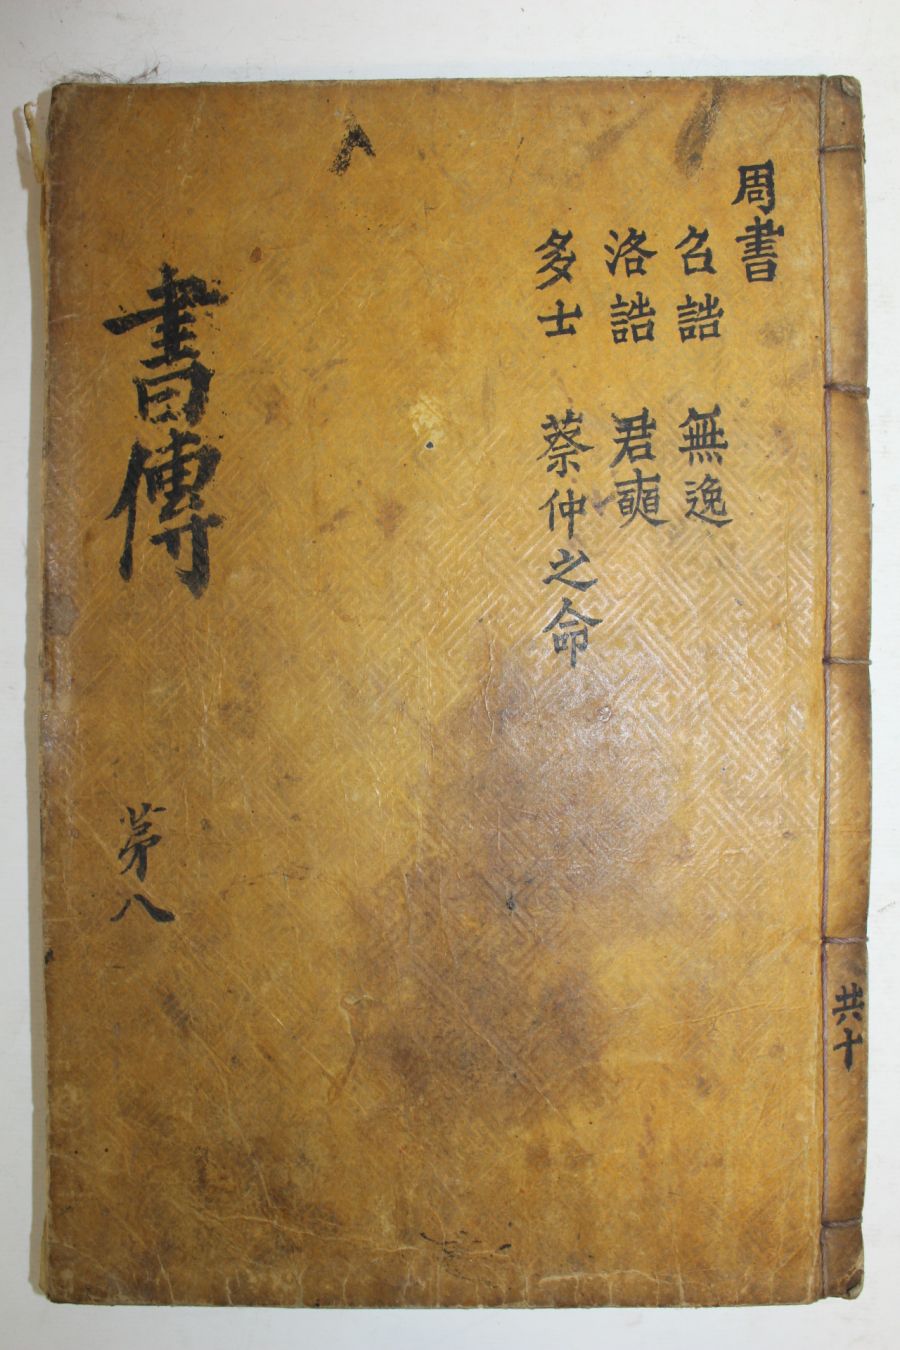 周書
召誥 無逸
洛誥 君奭
多士 蔡仲之命
書傳
第八
共十